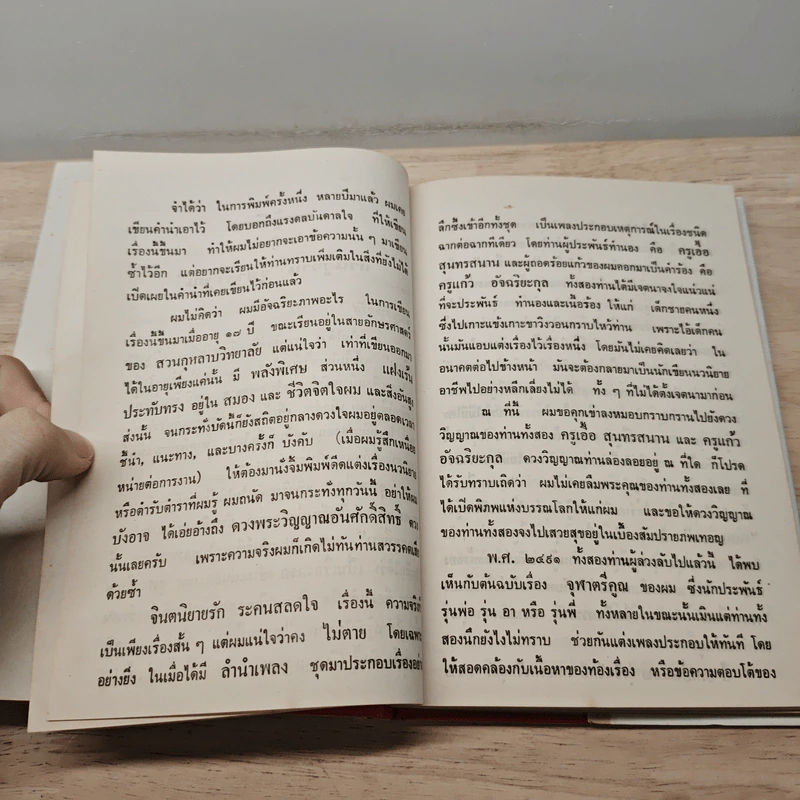 จำได้ว่า ในการพิมพ์ครั้งหนึ่ง หลายปีมาแล้ว ผมเคย
เขียนคำนำเอาไว้ โดยบอกถึงแรงดลบันดาลใจ ที่ให้เขียน
เรื่องนี้ขึ้นมา ทำให้ผมไม่อยากจะเอาข้อความนั้น ๆ มาเขียน
ซ้ำไว้อีก แต่อยากจะเรียนให้ท่านทราบเพิ่มเติมในสิ่งที่ยังไม่ได้
เปิดเผยในคำนำที่เคยเขียนไว้ก่อนแล้ว
ผมไม่คิดว่า ผมมีอัจฉริยะภาพอะไร ในการเขียน
เรื่องนี้ขึ้นมาเมื่ออายุ ๑๗ ปี ขณะเรียนอยู่ในสายอักษรศาสตร์
ของ สวนกุหลาบวิทยาลัย แต่แน่ใจว่า เท่าที่เขียนออกมา
ได้ในอายุเพียงแค่นั้น มี พลังพิเศษ ส่วนหนึ่ง แฝงเร้น
ประทับทรง อยู่ใน สมอง และ ชีวิตจิตใจผม และสิ่งอันสูง
ส่งนั้น จนกระทั่งบัดนี้ก็ยังสถิตอยู่กลางดวงใจผมอยู่ตลอดเวลา
ชี้นำ, แนะทาง, และบางครั้งก็ บังคับ (เมื่อผมรู้สึกเหนื่อย
หน่ายต่อการงาน) ให้ต้องมานั่งจิ้มพิมพ์ดีดแต่งเรื่องนวนิยาย
หรือตำรับตำราที่ผมรู้ ผมถนัด มาจนกระทั่งทุกวันนี้ อย่าให้ผม
บังอาจ ได้เอ่ยอ้างถึง ดวงพระวิญญาณอันศักดิ์สิทธิ์
นั้นเลยครับ เพราะความจริงผมก็เกิดไม่ทันท่านสวรรคต
ด้วยซ้ำ
จินตนิยายรัก ระคนสลดใจ เรื่องนี้ ความจริง
เป็นเพียงเรื่องสั้น ๆ แต่ผมแน่ใจว่าคง ไม่ตาย โดยเฉพาะ
อย่างยิ่ง ในเมื่อได้มี ลำนำเพลง ชุดมาประกอบเรื่องอย่าง
ลึกซึ้งเข้าอีกทั้งชุด เป็นเพลงประกอบเหตุการณ์ในเรื่องชนิด
ฉากต่อฉากทีเดียว โดยท่านผู้ประพันธ์ทำนอง คือ ครูเอื้อ
สุนทรสนาน และผู้ถอดร้อยแก้วของผมออกมาเป็นคำร้อง คือ
ครูแก้ว อัจฉริยะกุล ทั้งสองท่านได้มีเจตนาจงใจแน่วแน่
ที่จะประพันธ์ ทำนองและเนื้อร้อง ให้แก่ เด็กชายคนหนึ่ง
ซึ่งไปเกาะแข้งเกาะขาวิงวอนกราบไหว้ท่าน เพราะไอ้เด็กคน
นั้นมันแอบแต่งเรื่องไว้เรื่องหนึ่ง โดยมันไม่เคยคิดเลยว่า ใน
อนาคตต่อไปข้างหน้า มันจะต้องกลายมาเป็นนักเขียนนวนิยาย
อาชีพไปอย่างหลีกเลี่ยงไม่ได้ ทั้ง ๆ ที่ไม่ได้ตั้งเจตนามาก่อน
ณ ที่นี้ ผมขอคุกเข่าลงหมอบกราบกรานไปยังดวง
วิญญาณของท่านทั้งสอง ครูเอื้อ สุนทรสนาน และ ครูแก้ว
อัจฉริยะกุล ดวงวิญญาณท่านล่องลอยอยู่ ณ ที่ใด ก็โปรด
ได้รับทราบเถิดว่า ผมไม่เคยลืมพระคุณของท่านทั้งสองเลย ที่
ได้เปิดพิภพแห่งบรรณโลกให้แก่ผม และขอให้ดวงวิญญาณ
ของท่านทั้งสองจงไปเสวยสุขอยู่ในเบื้องสัมปรายภพเทอญ
พ.ศ. ๒๔๙๑ ทั้งสองท่านผู้ล่วงลับไปแล้วนี้ ได้พบ
เห็นกับต้นฉบับเรื่อง จุฬาตรีคูณ ของผม ซึ่งนักประพันธ์
รุ่นพ่อ รุ่น อา หรือ รุ่นพี่ ทั้งหลายในขณะนั้นเมินแต่ท่านทั้ง
สองนึกยังไงไม่ทราบ ช่วยกันแต่งเพลงประกอบให้ทันที โดย
ให้สอดคล้องกับเนื้อหาของท้องเรื่อง หรือข้อความตอบโต้ของ